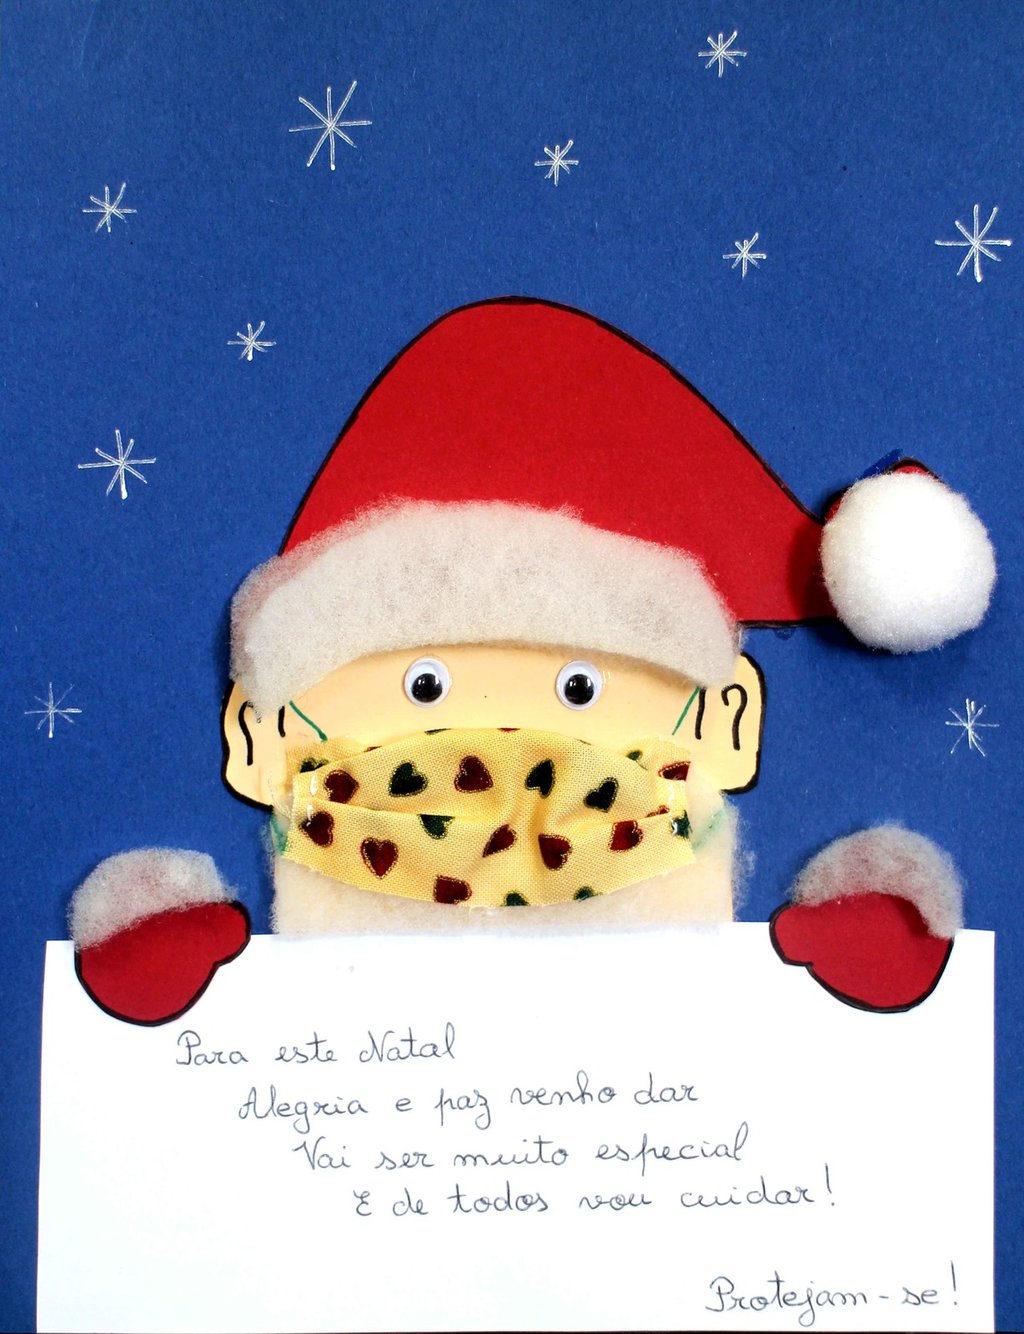 Para este Natal
Alegria e paz venho dar
Vai ser muito especial
E de todos vou cuidar!
Protejam-se!